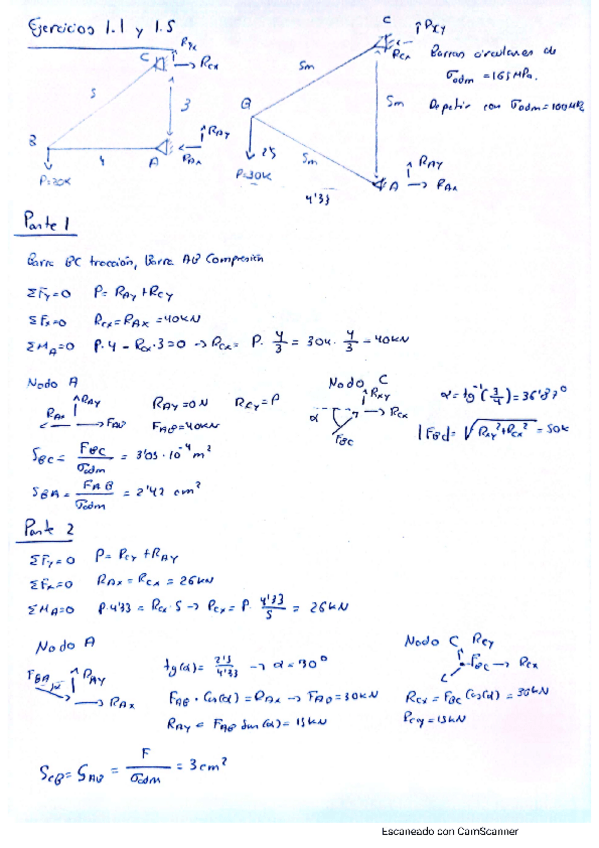 Ejercicios 1.1 y 1.5
C
RYC
RCX
5
3
B
4
A
RAY
RAX
P=30K
C
RCY
RCX
5m
5m
B
2'5
P=30K
5m
A
RAY
RAX
4'33
Barras circulares de
σadm = 165MPa.
Repetir con σadm=100MPa
Parte 1
Barra BC tracción, Barra AB Compresión
ΣFy=0 P= RAY + RCY
ΣFx=0 RCX=RAX=40kN
ΣMA=0 P·4 - RCX·3=0 -> RCX= P· 4/3 = 30k· 4/3 - 40kN
Nodo A
RAY
RAX
FAB
RAY=0N RCY=P
FAB=40kN
Nodo C
RCY
α
RCX
FBC
α=tg⁻¹(3/4)=36'87º
|FBC|= √(RCY²+RCX²) = 50k
SBC= FBC/σadm = 3'03·10⁻⁴ m²
SBA= FAB/σadm = 2'42 cm²
Parte 2
ΣFy=0 P= RCY + RAY
ΣFx=0 RAX=RCX = 26kN
ΣMA=0 P·4'33 = RCX·5 -> RCX= P· 4'33/5 = 26kN
Nodo A
FBA
RAY
RAX
tg(α)= 2'5/4'33 -> α=30º
FAB·Cos(α)=RAX -> FAB=30kN
RAY = FAB Sen(α)=15kN
Nodo C
RCY
FBC
RCX
RCX=FBC Cos(α)=30kN
RCY=15kN
SCB= SAB = F/σadm = 3cm²
Escaneado con CamScanner